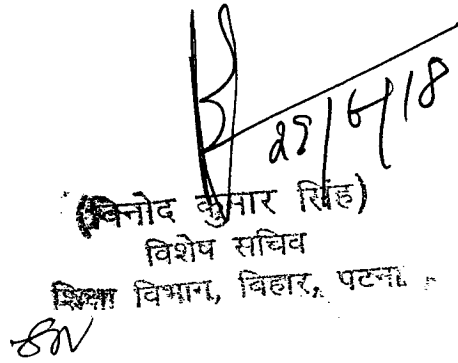 29/6/18
(विनोद कुमार सिंह)
विशेष सचिव
शिक्षा विभाग, बिहार, पटना